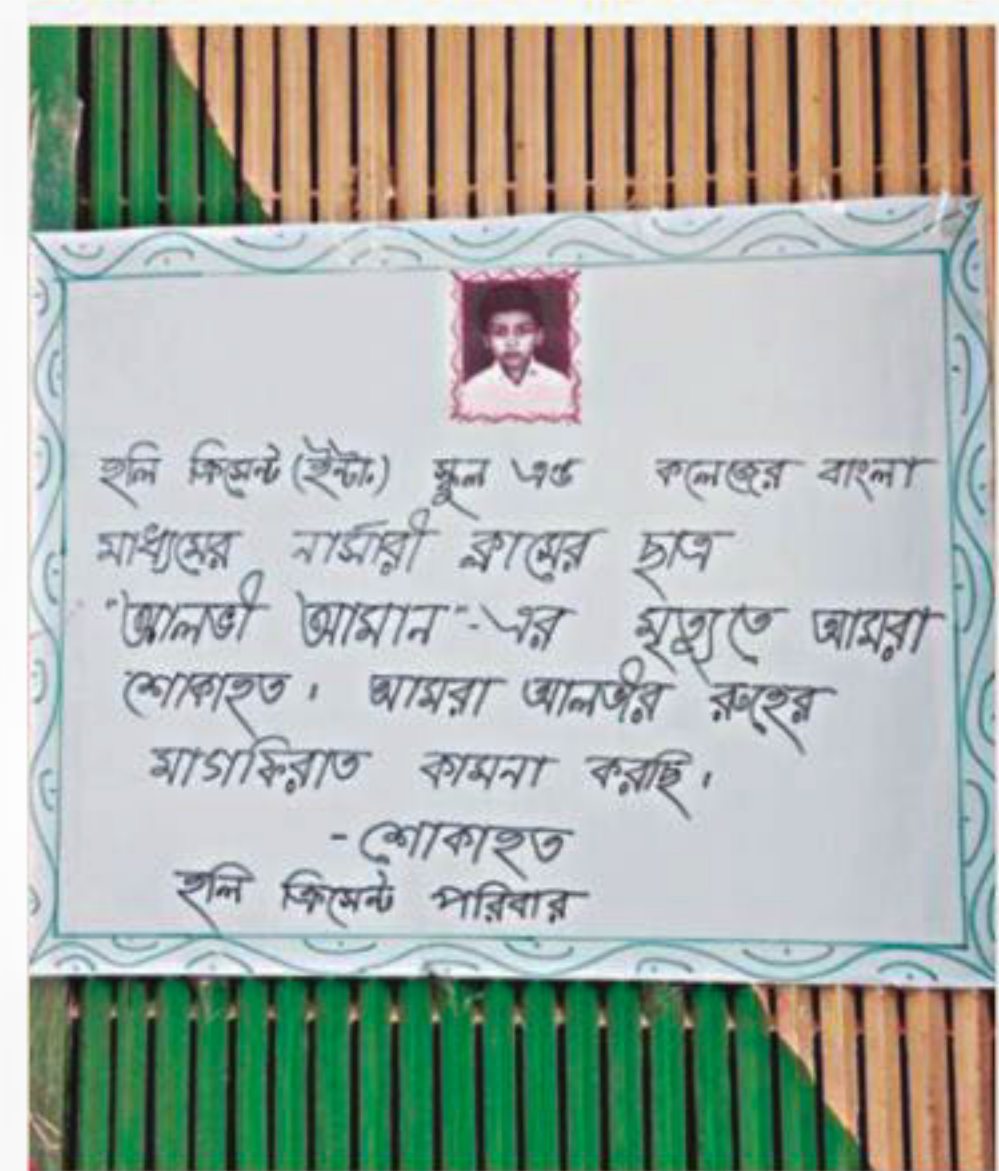 হলি ক্রিসেন্ট (ইন্টা.) স্কুল এণ্ড কলেজের বাংলা
মাধ্যমের নার্সারী ক্লাসের ছাত্র
"আলভী আমান"-এর মৃত্যুতে আমরা
শোকাহত। আমরা আলভীর রুহের
মাগফিরাত কামনা করছি।
- শোকাহত
হলি ক্রিসেন্ট পরিবার